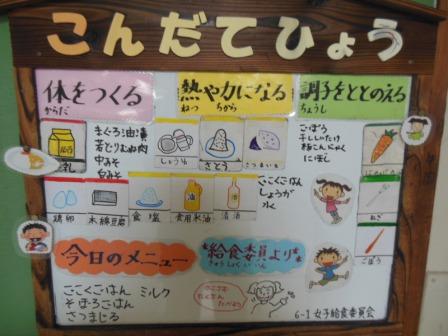 こんだてひょう
体をつくる
からだ
熱や力になる
ねつ ちから
調子をととのえる
ちょうし
まぐろ油漬
若どりむね肉
中みそ
白みそ
しょうゆ
さとう
さつまいも
ごぼう
干ししいたけ
板こんにゃく
にぼし
にんじん
鶏卵
木綿豆腐
食塩
食用米油
清酒
ごこくごはん
しょうが
水
ねぎ
ごぼう
今日のメニュー
給食委員より
きゅうしょくいいん
ごこくごはん ミルク
そぼろごはん
さつまじる
6-1 女子給食委員会